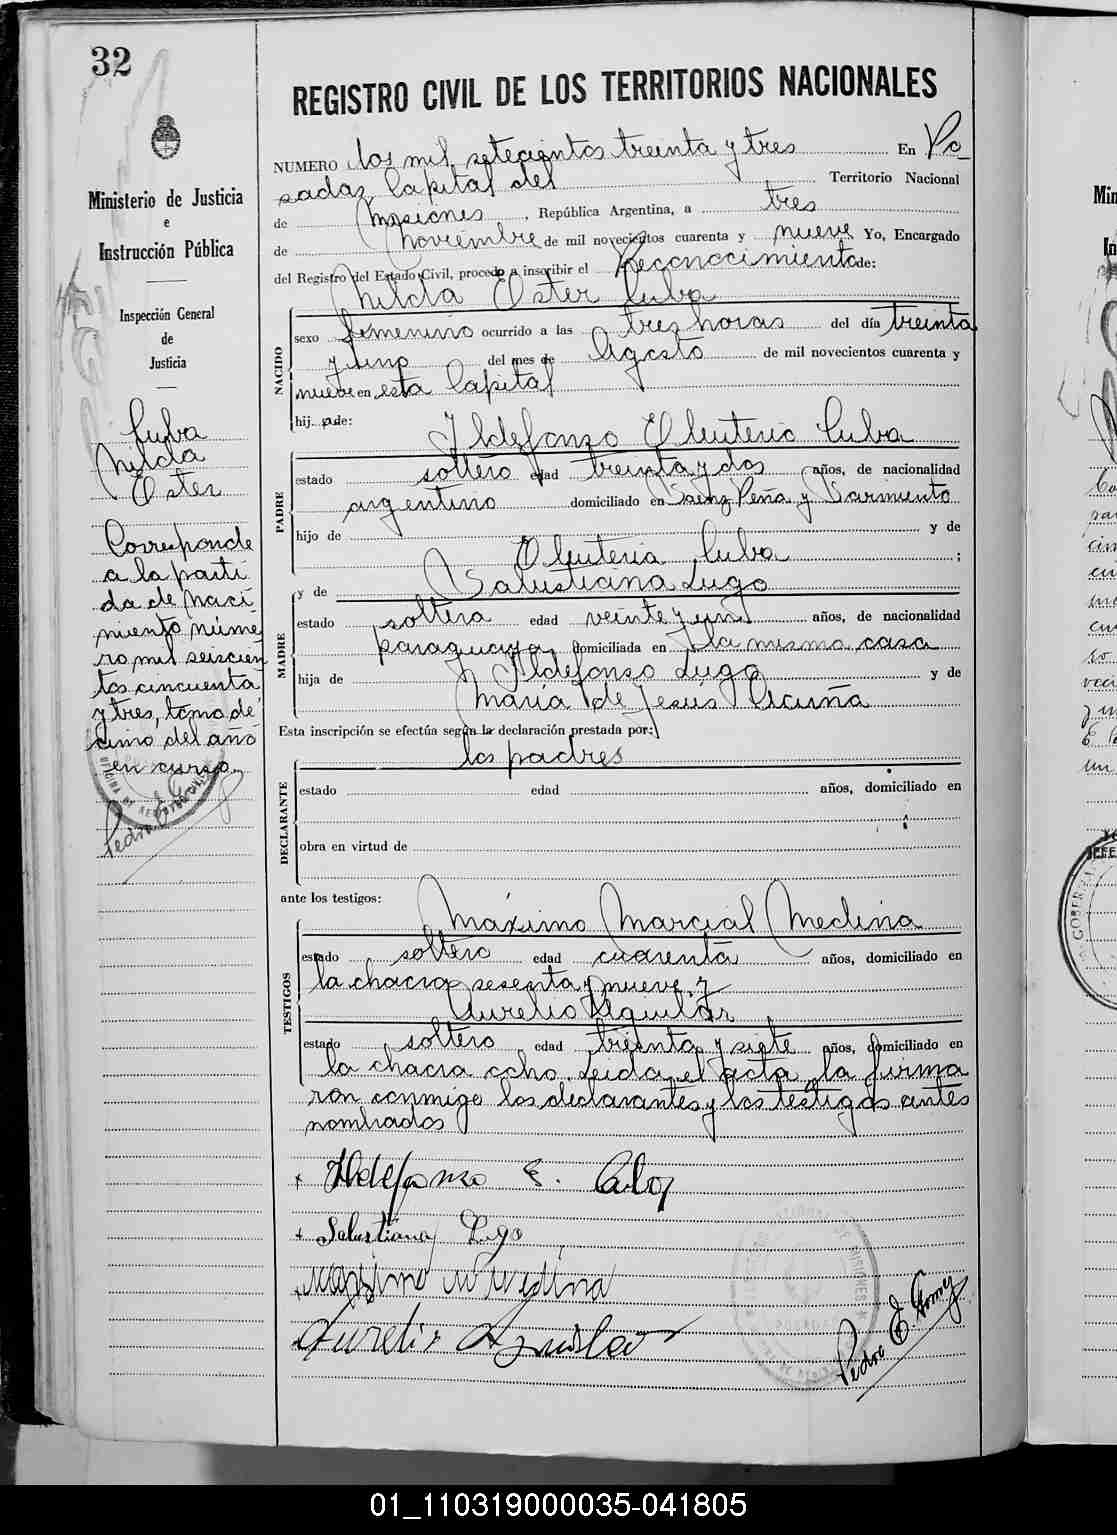 32
Ministerio de Justicia
e
Instrucción Pública
Inspección General
de
Justicia
Cuba
Nilda
Ester
Corresponde
a la parti
da de naci-
miento núme
ro mil seiscien
tos cincuenta
y tres, tomo dé
cimo del año
en curso.
REGISTRO CIVIL DE LOS TERRITORIOS NACIONALES
NUMERO dos mil setecientos treinta y tres En Po-
sadas, Capital del Territorio Nacional
de Misiones, República Argentina, a tres
de noviembre de mil novecientos cuarenta y nueve Yo, Encargado
del Registro del Estado Civil, procedo a inscribir el Reconocimiento de:
Nilda Ester Cuba
NACIDO
sexo femenino ocurrido a las tres horas del día treinta
y uno del mes de Agosto de mil novecientos cuarenta y
nueve en esta Capital
hij a de:
Ildefonso Eleuterio Cuba
PADRE
estado soltero edad treinta y dos años, de nacionalidad
argentino domiciliado en Saenz Peña y Sarmiento
hijo de y de
Eleuteria Cuba ;
y de Salustiana Lugo
MADRE
estado soltera edad veinte y un años, de nacionalidad
paraguaya domiciliada en la misma casa
hija de Ildefonso Lugo y de
María de Jesús Acuña
Esta inscripción se efectúa según la declaración prestada por:
los padres
DECLARANTE
estado edad años, domiciliado en
obra en virtud de
ante los testigos:
Máximo Marcial Medina
TESTIGOS
estado soltero edad cuarenta años, domiciliado en
la chacra sesenta y nueve y
Aurelio Aguilar
estado soltero edad treinta y siete años, domiciliado en
la chacra ocho. Leida el acta, la firma
ron conmigo los declarantes y los testigos antes
nombrados
Ildefonso E. Cuba
Salustiana Lugo
Maximo M Medina
Aurelio Aguilar
Pedro E. Gomez
01_110319000035-041805